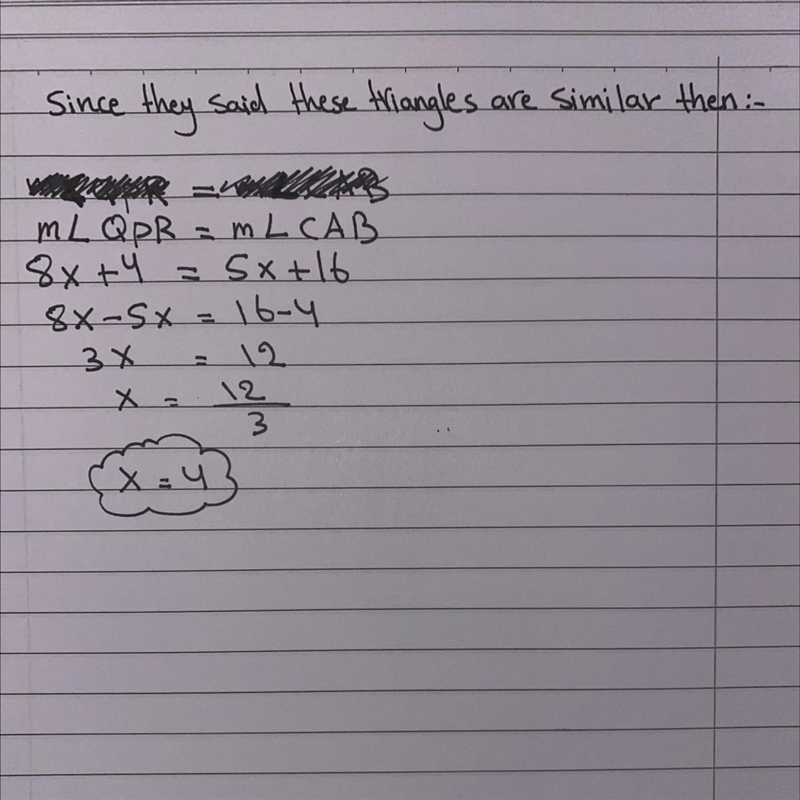 Since they said these triangles are similar then:-
=
m∠ QPR = m∠ CAB
8x+4 = 5x+16
8x-5x = 16-4
3x = 12
x = 12/3
x = 4